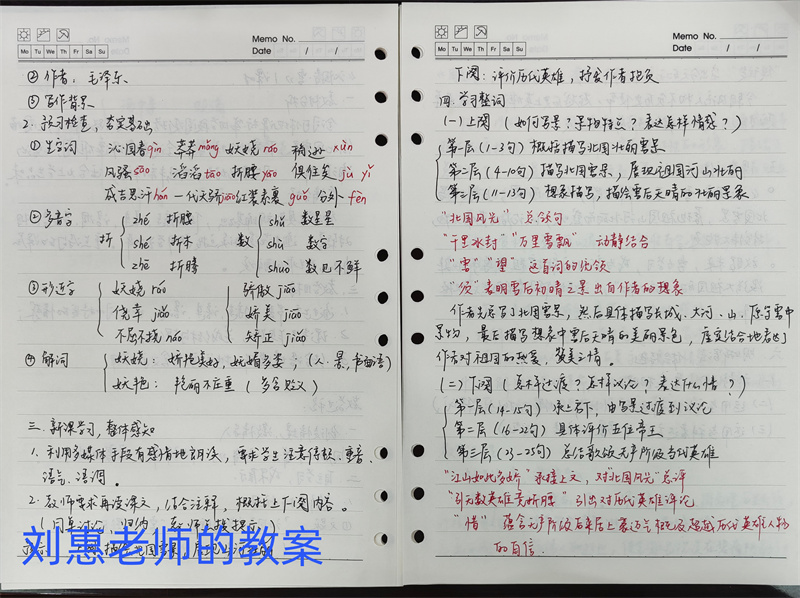 Memo No.
Mo Tu We Th Fr Sa Su
Date / /
② 作者：毛泽东
③ 写作背景
2. 预习检查，夯实基础
① 生字词 沁园春qìn 莽莽mǎng 妖娆ráo 稍逊xùn
风骚sāo 滔滔tāo 折腰yāo 俱往矣jù yǐ
成吉思汗hán 一代天骄jiāo 红装素裹guǒ 分外fèn
② 多音字 折 zhé 折腰
shé 折本
zhē 折腾
数 shǔ 数星星
shù 数字
shuò 数见不鲜
③ 形近字 妖娆ráo
侥幸jiǎo
不屈不挠náo
骄傲jiāo
娇美jiāo
矫正jiǎo
④ 解词 妖娆：娇艳美好，妩媚多姿；（人、景，书面语）
妖艳：艳丽不庄重（多含贬义）
三、新课学习，整体感知
1. 利用多媒体手段有感情地朗诵，要求学生注意停顿、重音、
语气、语调。
2. 教师要求再读课文，结合注释，概括上下阕内容。
（同桌讨论、归纳 教师点拨提示）
刘惠老师的教案
Memo No.
Mo Tu We Th Fr Sa Su
Date / /
下阕：评价历代英雄，抒发作者抱负
四、学习整词
（一）上阕（如何写景？景物特点？表达怎样情感？）
第一层（1-3句）概括描写北国壮丽雪景
第二层（4-10句）描写北国雪景，展现祖国河山壮丽
第三层（11-13句）想象描写，描绘雪后天晴的壮丽景象
“北国风光” 总领句
“千里冰封”“万里雪飘” 动静结合
“雪”“望” 这首词的统领
“须”表明雪后初晴之景出自作者的想象
作者先总写了北国雪景，然后具体描写长城、大河、山、原等雪中
景物，最后描写想象中雪后天晴的美丽景色，虚实结合地表达了
作者对祖国的热爱、赞美之情。
（二）下阕（怎样过渡？怎样议论？表达什么情？）
第一层（14-15句）承上启下，由写景过渡到议论
第二层（16-22句）具体评价五位帝王
第三层（23-25句）总结歌颂无产阶级当代英雄
“江山如此多娇”承接上文，对“北国风光”总评
“引无数英雄竞折腰” 引出对历代英雄评论
“惜” 蕴含无产阶级后来居上豪迈气概及超越历代英雄人物
的自信.